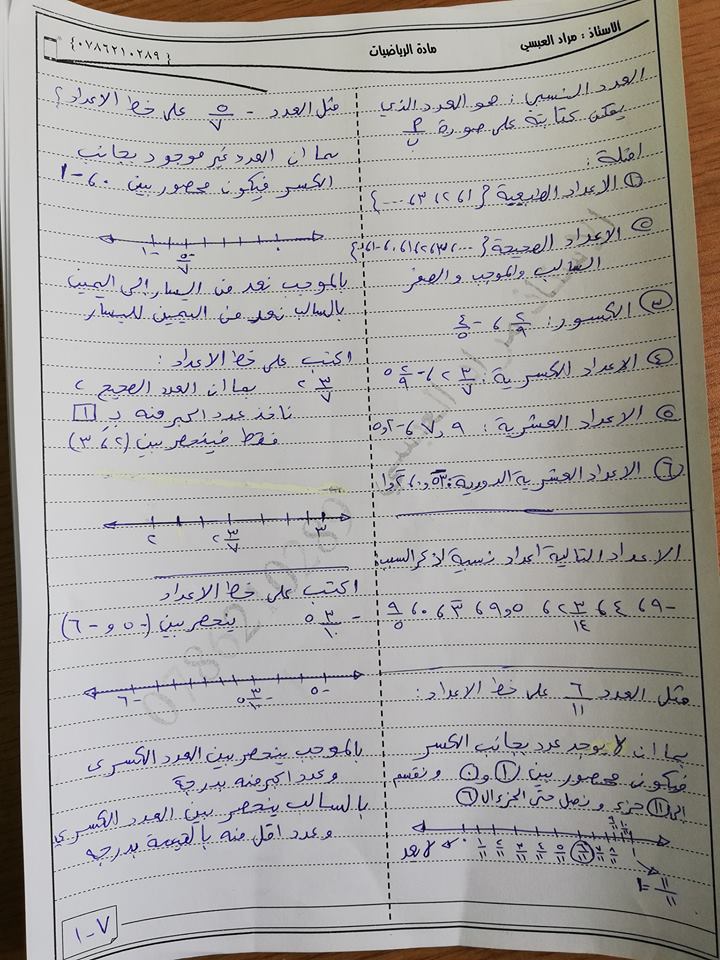 الاستاذ : مراد العبسي
مادة الرياضيات
{٠٧٨٦٢١٠٢٨٩}
العدد النسبي : هو العدد الذي
يمكن كتابته على صورة أ/ب
امثلة :
① الاعداد الطبيعية {١، ٢، ٣، ...}
② الاعداد الصحيحة {...
السالب والموجب والصفر
③ الكسور : ٢/٩ ، -٤/٥
④ الاعداد الكسرية : ٢ ٣/٧ ، -٥ ٢/٩
⑤ الاعداد العشرية : ٧,٩ ، -٢,٥
⑥ الاعداد العشرية الدورية :
الاعداد التالية اعداد نسبية اذكر السبب
-٩ ، ٤ ، ٢ ٣/١٤ ، ٩,٥ ، ٠ ، ٩/٥
مثل العدد ٦/١١ على خط الاعداد :
بما ان لا يوجد عدد بجانب الكسر
فيكون محصور بين ① و ٠ ونقسم
الى ⑪ جزء ونصل حتى الجزء الـ ⑥
٠ ١/١١ ٢/١١ ٣/١١ ٤/١١ ٥/١١ ٦/١١ ٧/١١ ٨/١١ ٩/١١ ١٠/١١
١١/١١ = ١
مثل العدد -٥/٧ على خط الاعداد ؟
بما ان العدد غير موجود بجانب
الكسر فيكون محصور بين ٠ ، -١
-١ -٥/٧ ٠
بالموجب نعد من اليسار الى اليمين
بالسالب نعد من اليمين لليسار
اكتب على خط الاعداد :
٢ ٣/٧ بما ان العدد الصحيح ٢
نأخذ عدد اكبر منه بـ ١
فقط فينحصر بين (٢ ، ٣)
٢ ٢ ٣/٧ ٣
اكتب على خط الاعداد
-٥ ٣/١٠ ينحصر بين (-٥ و -٦)
-٦ -٥ ٣/١٠ -٥
بالموجب ينحصر بين العدد الكسري
وعدد اكبر منه بدرجة
بالسالب ينحصر بين العدد الكسري
وعدد اقل منه بالقيمة بدرجه
٧-١
0786210289